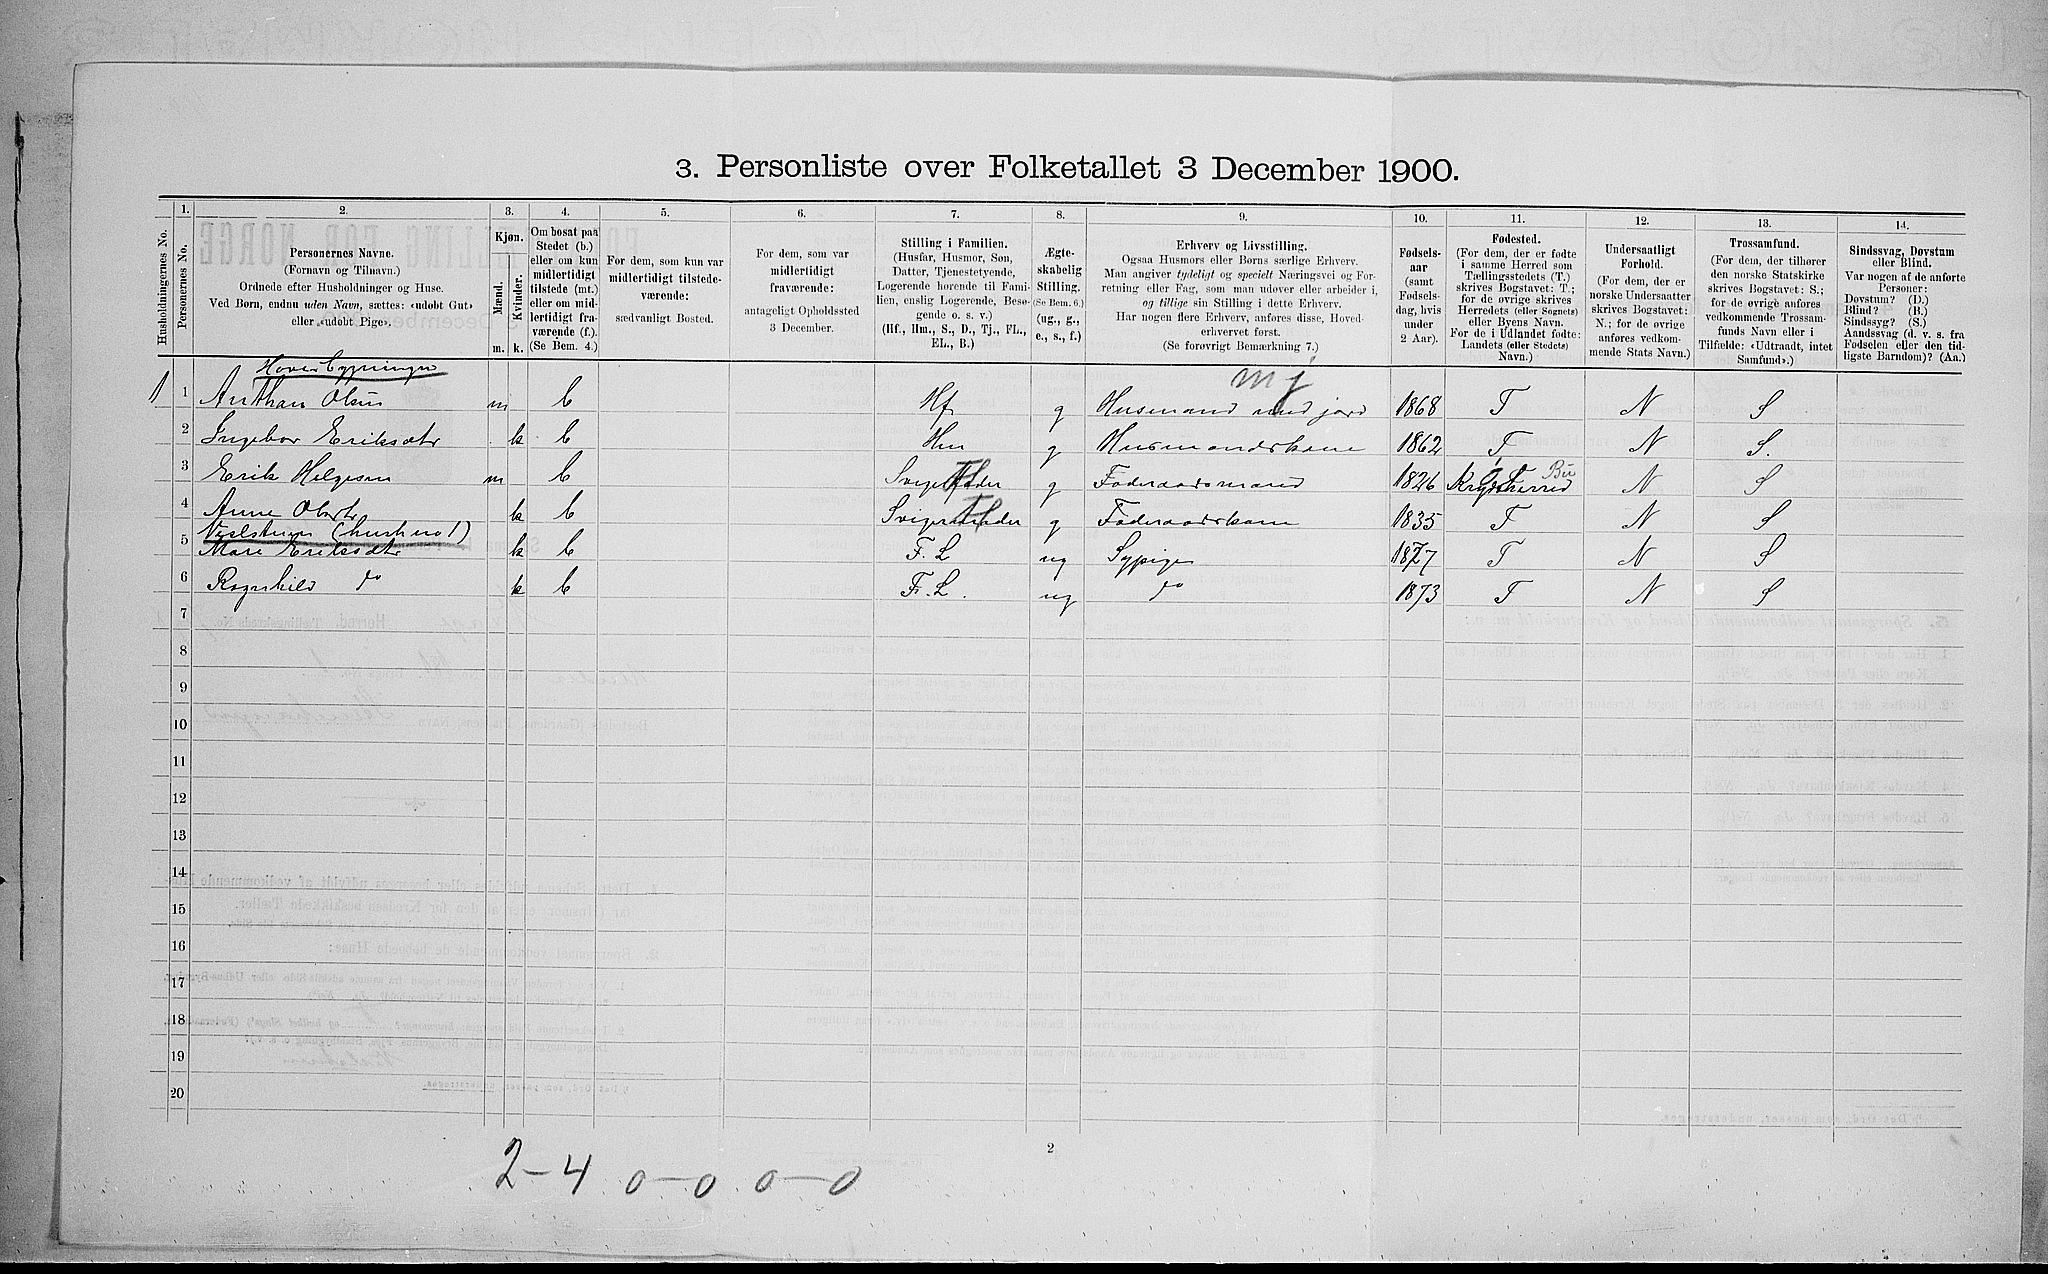 3. Personliste over Folketallet 3 December 1900.
Husholdningernes No.
1.
Personernes No.
2.
Personernes Navne.
(Fornavn og Tilnavn.)
Ordnede efter Husholdninger og Huse.
Ved Børn, endnu uden Navn, sættes: «udøbt Gut»
eller «udøbt Pige».
3.
Kjøn.
Mænd.
Kvinder.
m. k.
4.
Om bosat paa
Stedet (b.)
eller om kun
midlertidigt
tilstede (mt.)
eller om mid-
lertidigt fra-
værende (f.).
(Se Bem. 4.)
5.
For dem, som kun var
midlertidigt tilstede-
værende:
sædvanligt Bosted.
6.
For dem, som var
midlertidigt
fraværende:
antageligt Opholdssted
3 December.
7.
Stilling i Familien.
(Husfar, Husmor, Søn,
Datter, Tjenestetyende,
Logerende hørende til Fami-
lien, enslig Logerende, Besø-
gende o. s. v.)
(Hf., Hm., S., D., Tj., FL.,
EL., B.)
8.
Ægte-
skabelig
Stilling.
(Se Bem. 6.)
(ug., g.,
e., s., f.)
9.
Erhverv og Livsstilling.
Ogsaa Husmors eller Børns særlige Erhverv.
Man angiver tydeligt og specielt Næringsvei og For-
retning eller Fag, som man udøver eller arbeider i,
og tillige sin Stilling i dette Erhverv.
Har nogen flere Erhverv, anføres disse, Hoved-
erhvervet først.
(Se forøvrigt Bemærkning 7.)
10.
Fødsels-
aar
(samt
Fødsels-
dag, hvis
under
2 Aar).
11.
Fødested.
(For dem, der er fødte
i samme Herred som
Tællingsstedets (T.)
skrives Bogstavet: T.;
for de øvrige skrives
Herredets (eller Sognets)
eller Byens Navn.
For de i Udlandet fødte:
Landets (eller Stedets)
Navn.)
12.
Undersaatligt
Forhold.
(For dem, der er
norske Undersaatter
skrives Bogstavet:
N.; for de øvrige
anføres vedkom-
mende Stats Navn.)
13.
Trossamfund.
(For dem, der tilhører
den norske Statskirke
skrives Bogstavet: S.;
for de øvrige anføres
vedkommende Trossam-
funds Navn eller i
Tilfælde: «Udtraadt, intet
Samfund».)
14.
Sindssvag, Døvstum
eller Blind.
Var nogen af de anførte
Personer:
Døvstum? (D.)
Blind? (B.)
Sindssyg? (S.)
Aandssvag (d. v. s. fra
Fødselen eller den tid-
ligste Barndom)? (Aa.)
mj
1 1 Anthan Olsen m b Hf g Husmand med jord 1868 T N S
2 Ingebor Eriksdtr k b Hm g Husmandskone 1862 T N S.
3 Erik Helgesen m b g Foderaadsmand 1826 N S
4 Anne k b g Foderaadskone 1835 T N S
5 Mari Eriksdtr k b F. L ug Sypige 1877 T N S
6 Ragnhild do k b F. L. ug do 1873 T N S
7
8
9
10
11
12
13
14
15
16
17
18
19
20
2
2-4 0-0 0-0